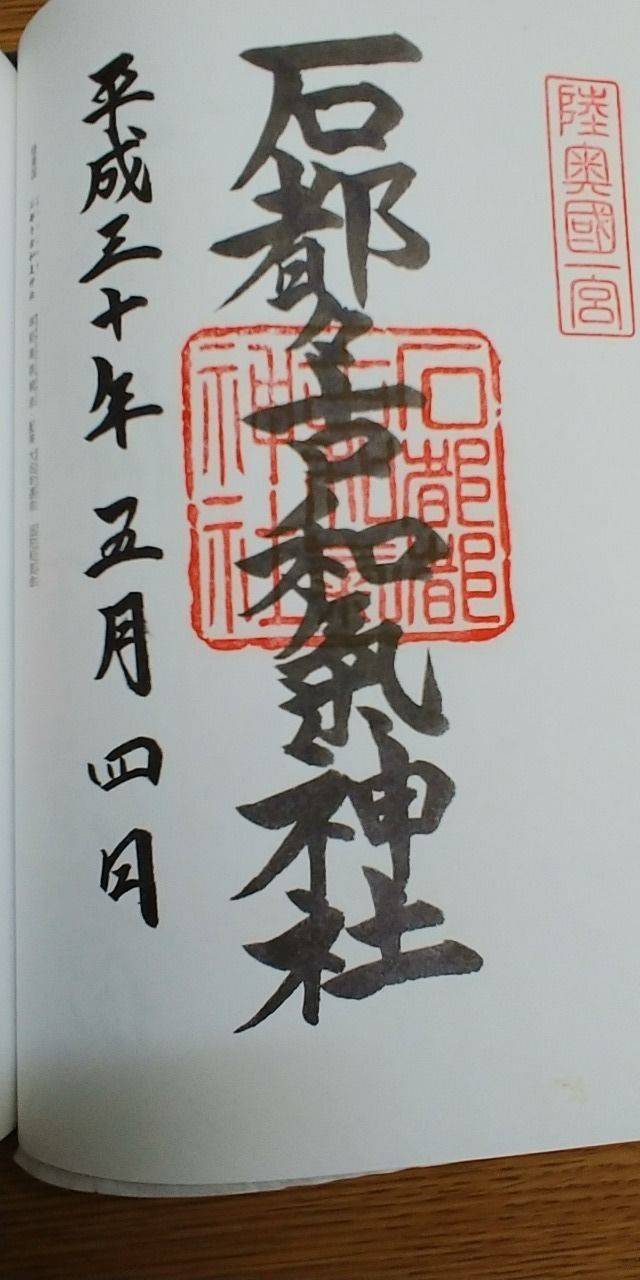 陸奥國一宮
石都々古和氣神社
石都都
古和氣
神社
平成三十年 五月 四日